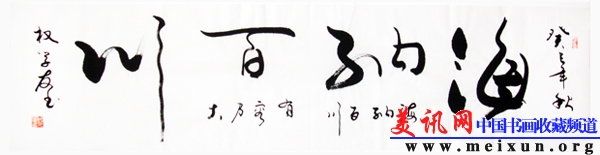 癸巳年秋
海纳百川
海纳百川
有容乃大
权学友书
美讯网
中国书画收藏频道
www.meixun.org